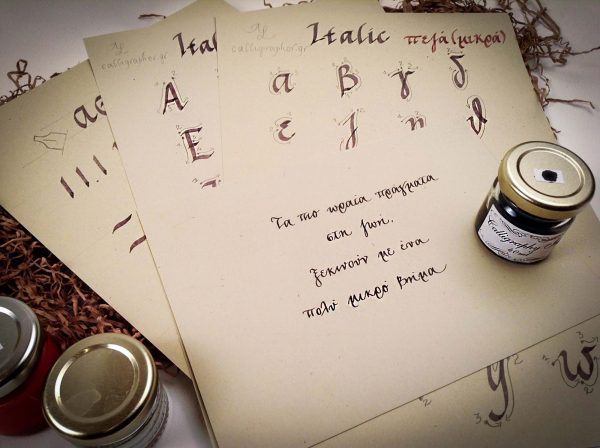 calligrapher.gr
Ital
Α
Ε
calligrapher.gr
Italic πεζά(μικρά)
α β γ δ
ε ζ η θ
Τα πιο ωραία πράγματα
στη ζωή,
ξεκινούν με ένα
πολύ μικρό βήμα
Calligraphy
ω